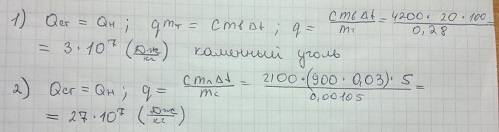 1) Qсг = Qн ; qmт = cmвΔt ; q = cmвΔt/mт = 4200·20·100/0,28 =
= 3·10⁷ (Дж/кг) каменный уголь
2) Qсг = Qн ; q = cmлΔt/mс = 2100·(900·0,03)·5/0,00105 =
= 27·10⁷ (Дж/кг)